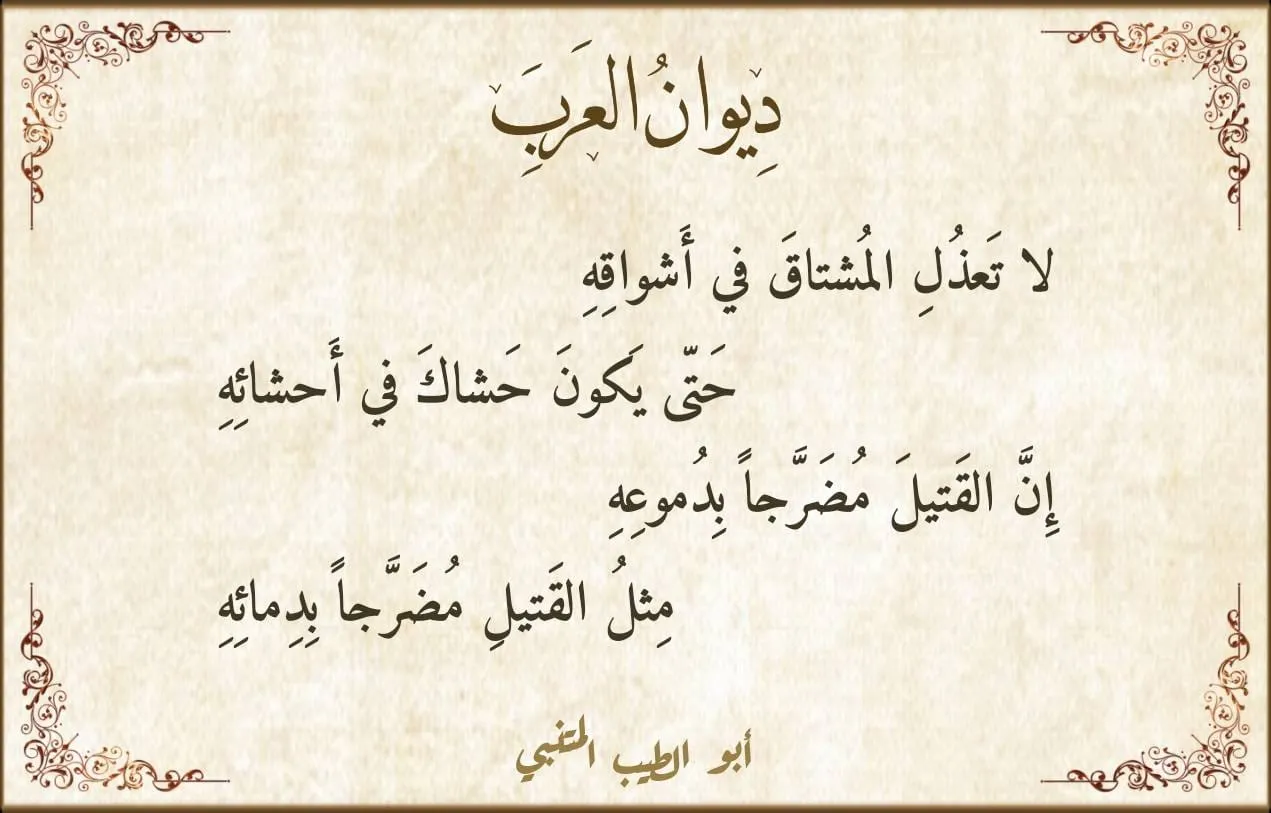 دِيوانُ العَرَبَِ
لا تَعذُلِ المُشتاقَ في أَشواقِهِ
حَتّى يَكونَ حَشاكَ في أَحشائِهِ
إِنَّ القَتيلَ مُضَرَّجاً بِدُموعِهِ
مِثلُ القَتيلِ مُضَرَّجاً بِدِمائِهِ
أبو الطيب المتنبي